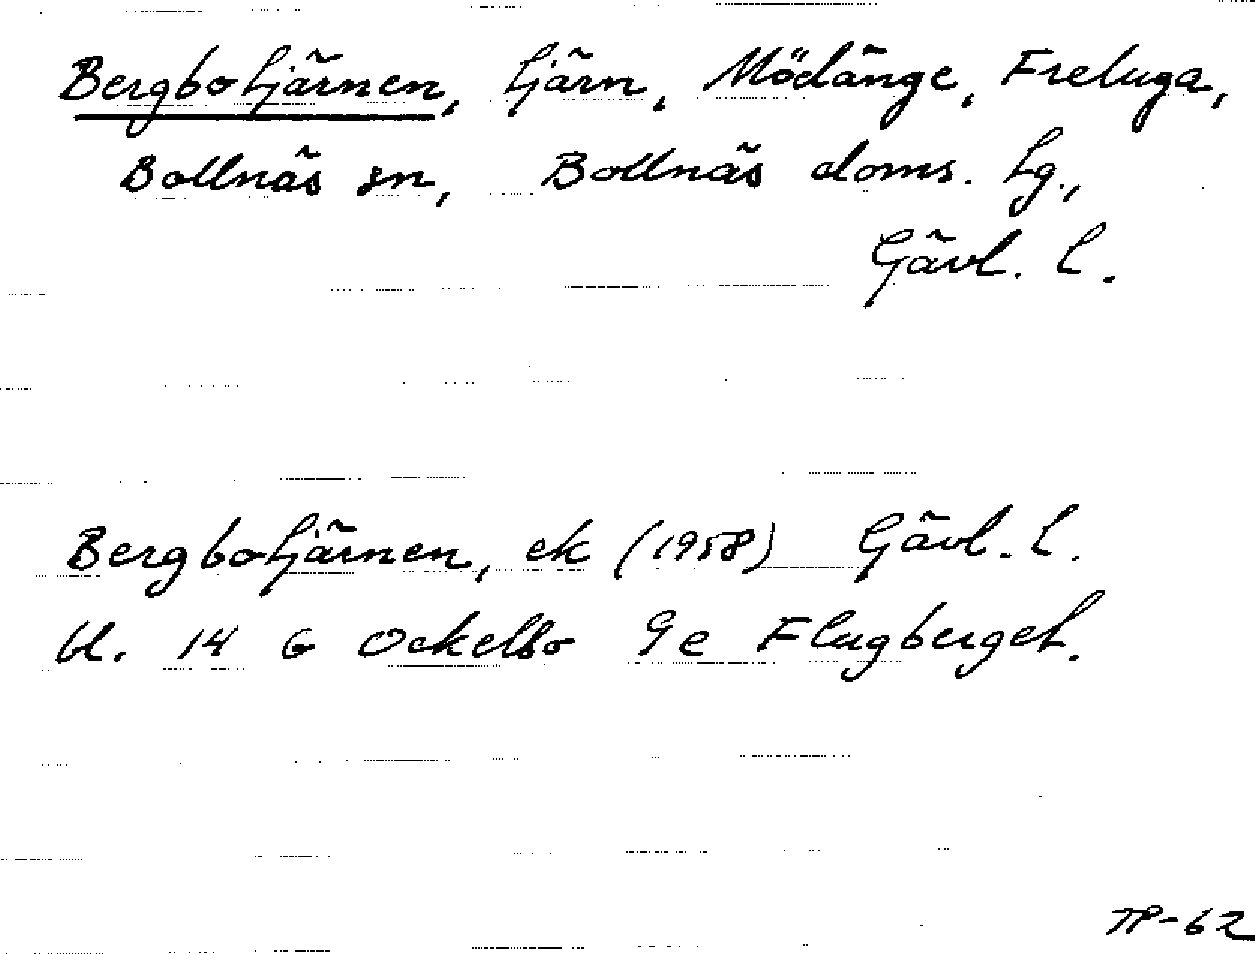 Bergbotjärnen, tjärn, Mödänge, Freluga,
Bollnäs sn, Bollnäs doms. tg.,
Gävl. l.
Bergbotjärnen, ek (1958) Gävl. l.
bl. 14 G Ockelbo 9e Flugberget.
TP-62